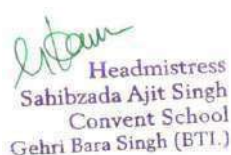 Headmistress
Sahibzada Ajit Singh
Convent School
Gehri Bara Singh (BTI.)